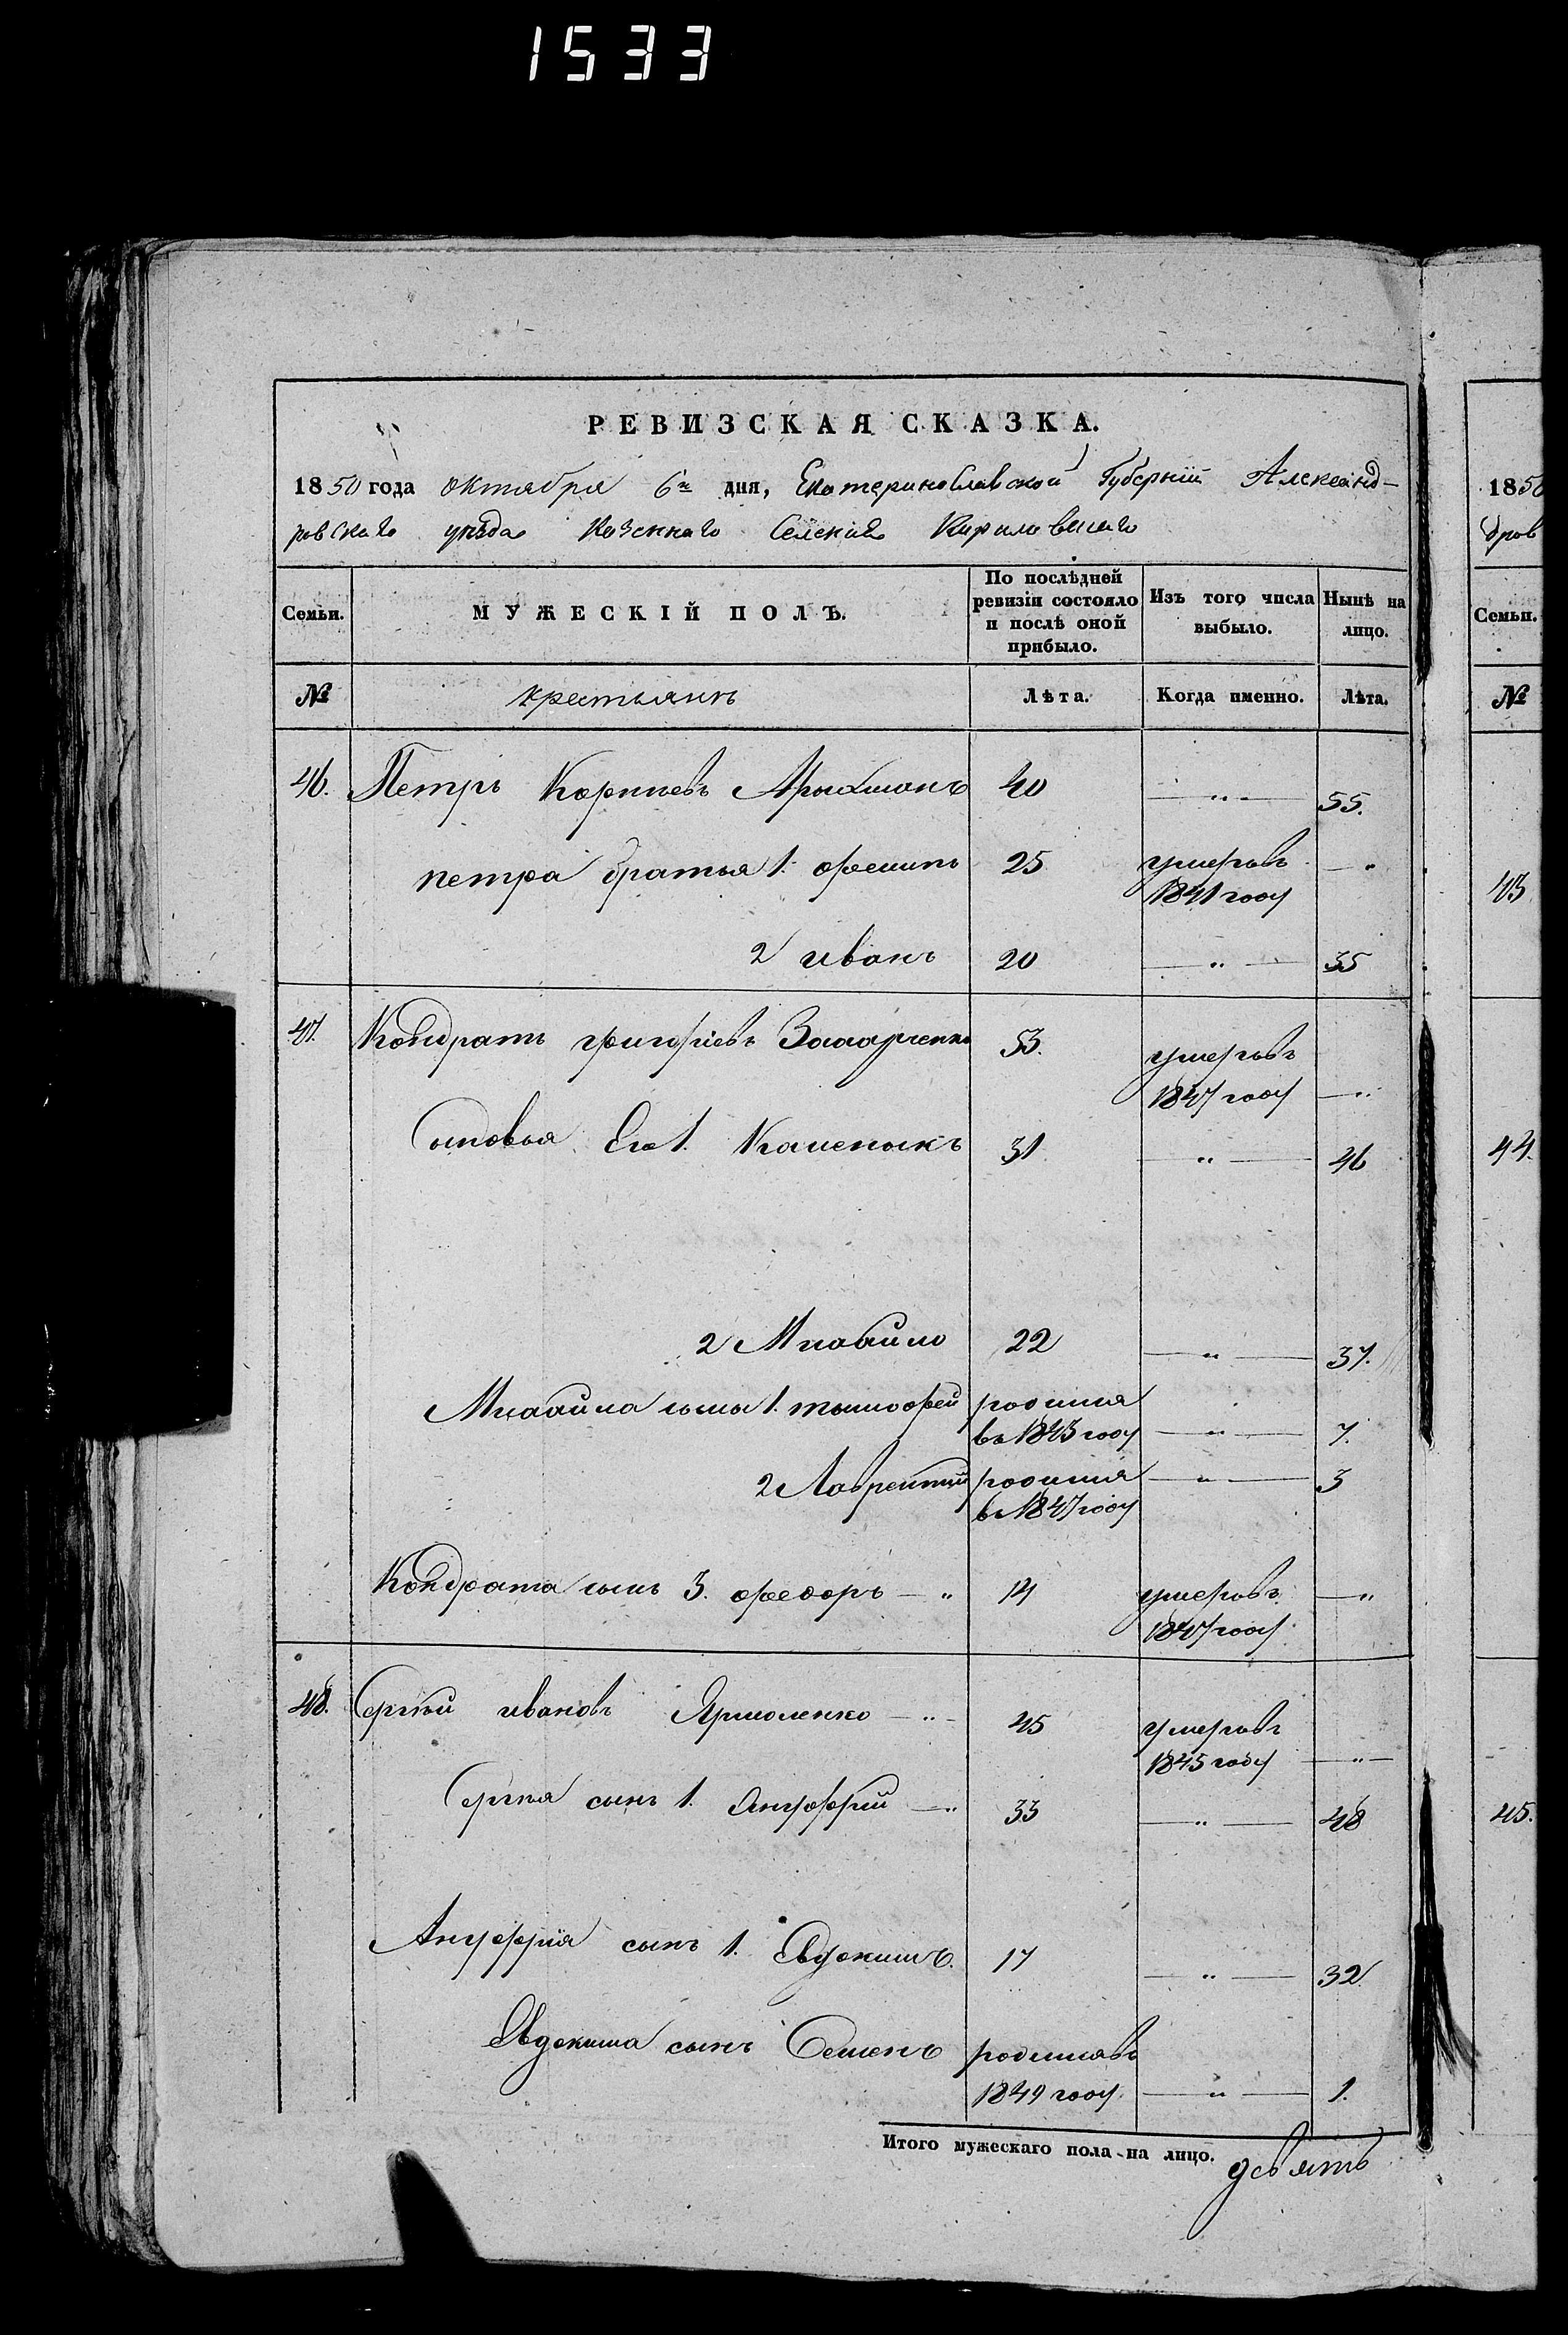 1533
РЕВИЗСКАЯ СКАЗКА.
1850 года октября 6го дня, Екатеринославской Губернiи Александ-
ровскаго уѣзда Казеннаго Селенiя Кириловскаго
Семьи. МУЖЕСКІЙ ПОЛЪ. По послѣдней ревизіи состояло и послѣ оной прибыло. Изъ того числа выбыло. Нынѣ на лицо.
№ крестьянъ Лѣта. Когда именно. Лѣта.
46. Петръ Корнiевъ 40 — „ — 55.
петра братья 1. 25 умеръ въ — „
1841 году
2 иванъ 20 — „ — 35
47. Кондратъ григорiевъ 53. умеръ въ
1847 году — „
Сыновья Его 1. 31 — „ — 46
2 Михайло 22 — „ — 37.
Михайла сыны 1. тимофей родился
въ 1843 году — „ — 7.
2 Лаврентiй родился — „ — 3
въ 1847 году
Кондрата сынъ 3. федоръ — „ 14 умеръ въ — „
1847 году
48. Сергѣй ивановъ Ярмоленко — „ — 45 умеръ въ
1845 году — „ —
Сергѣя сынъ 1. Ануфрiй — „ 33 — „ — 48
Ануфрiя сынъ 1. Евдокимъ. 17 — „ — 32.
Евдокима сынъ Семенъ родился въ
1849 году. — „ — 1.
Итого мужескаго пола на лицо. девять
1850
дров
Семьи.
№
43
44.
45.